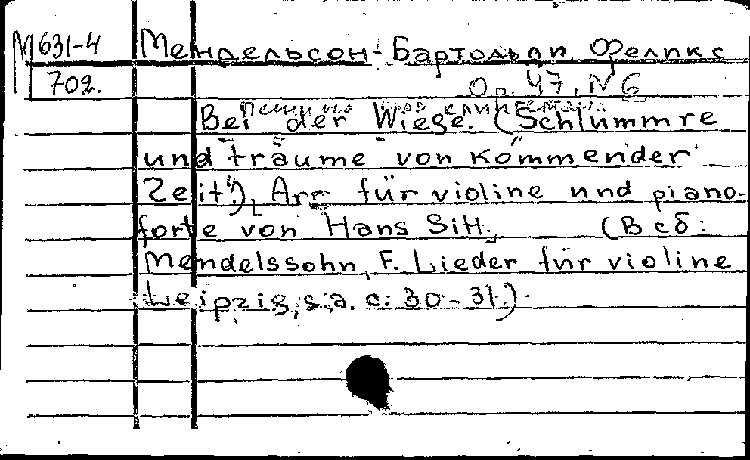 М 631-4 Мендельсон-Бартольди Феликс
702. Op. 47, N 6
Bei der Wiege. (Schlummre
und träume von kommender
Zeit"), Arr für violine und piano-
forte von Hans Sitt. (В сб:
Mendelssohn, F. Lieder für violine
Leipzig, s.a. c. 30-31.)